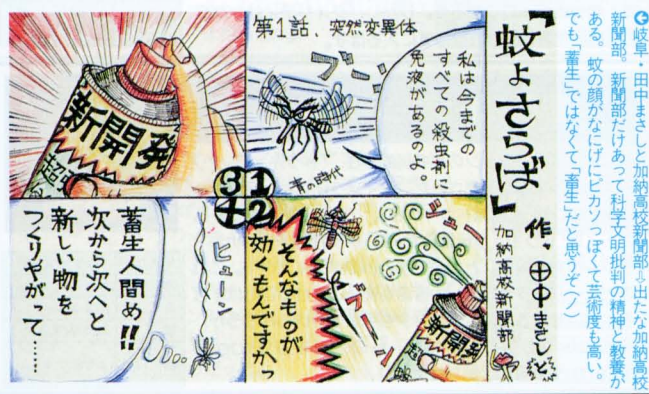 岐阜・田中まさしと加納高校新聞部⇨出たな加納高校
新聞部。新聞部だけあって科学文明批判の精神と教養が
ある。蚊の顔がなにげにピカソっぽくて芸術度も高い。
でも「蓄生」ではなくて「畜生」だと思うぞ(ノ)
『蚊よさらば』
作、田中まさしと
加納高校新聞部
第1話、突然変異体
1
私は今までの
すべての殺虫剤に
免液があるのよ。
ブーン
青の時代
2
ジュー
ブーーン
そんなものが
効くもんですかっ
新開発
超
3
新開発
超
4
ヒューン
蓄生人間め!!
次から次へと
新しい物を
つくりやがって……